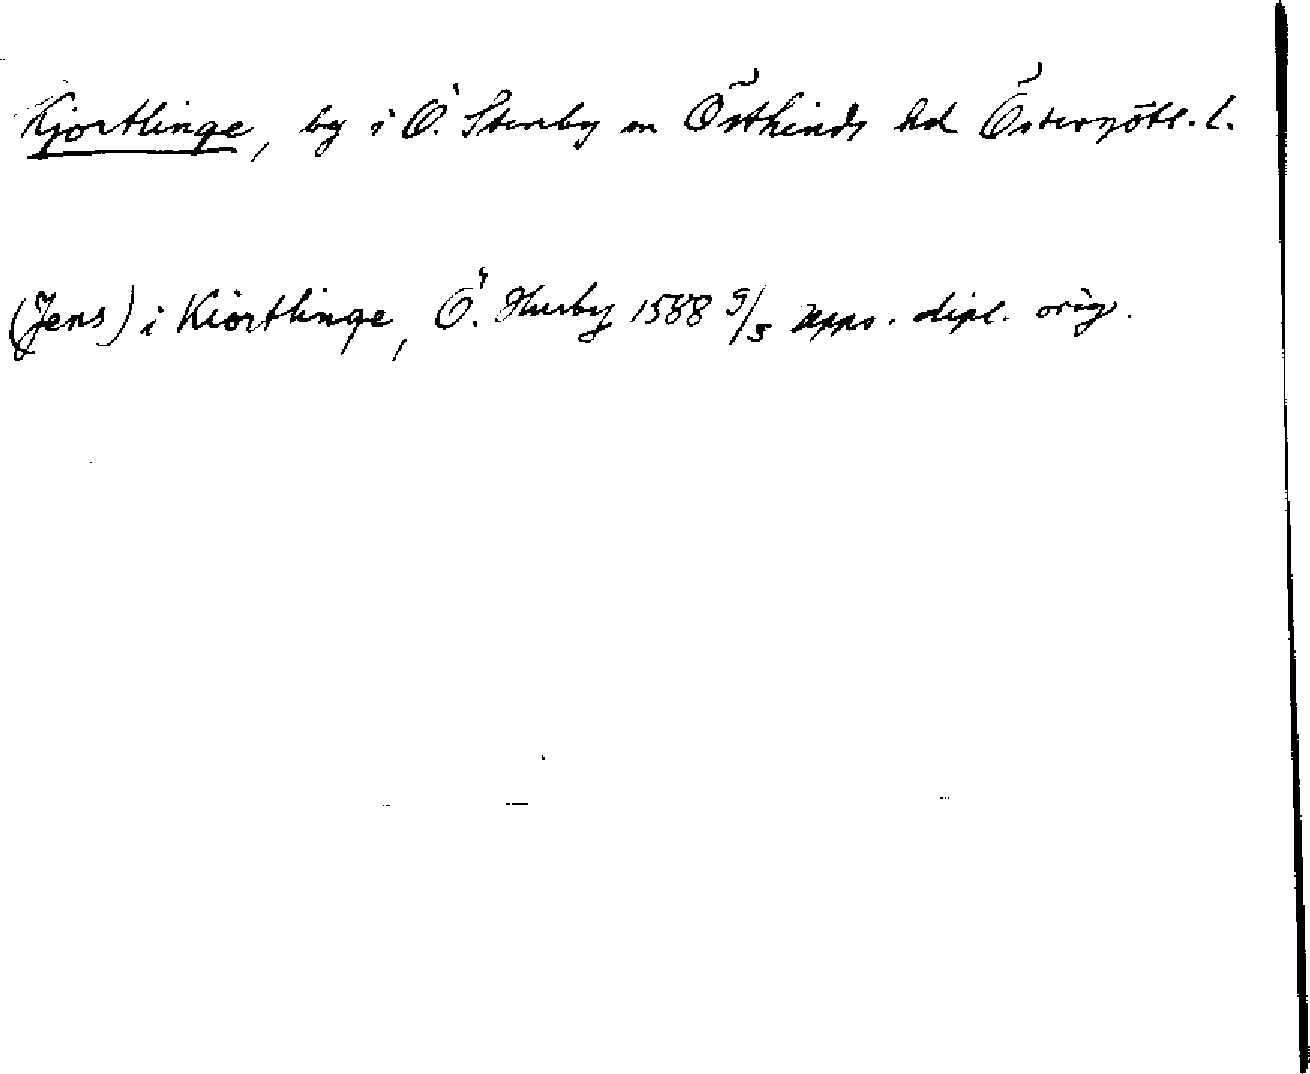 Kjortlinge, by i Ö. Stenby sn Östkinds hd Östergötl. l.
(Jens) i Kiörtlinge, Ö. Husby 1588 5/5 Upps. dipl. orig.